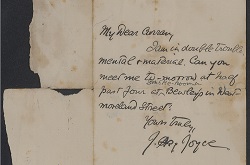 My Dear Curran,
I am in double trouble
mental & material. Can you
meet me to-morrow at half
past four at Bewley's in West-
moreland Street?
Yours truly,
Jas. A. Joyce